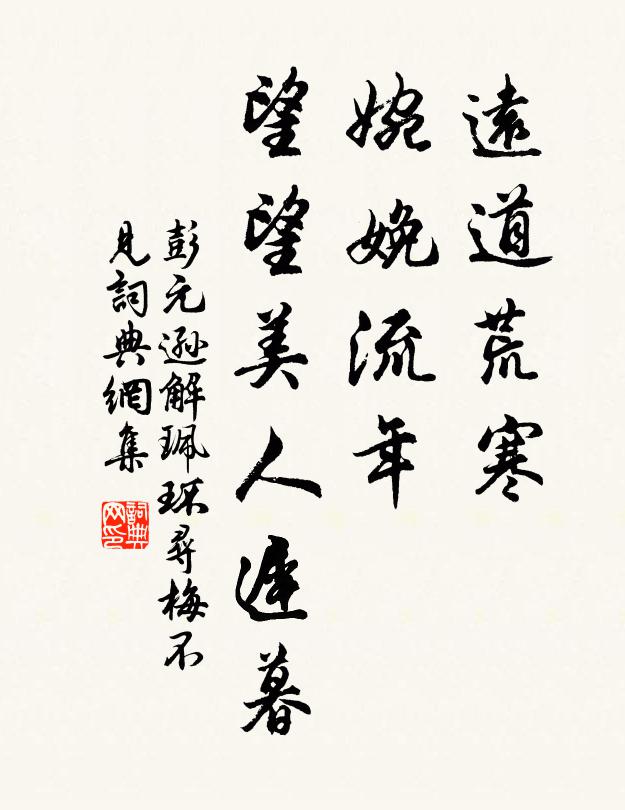 遠道荒寒
婉娩流年
望望美人遲暮
彭元遜解珮環尋梅不
見詞典網集
詞典网印